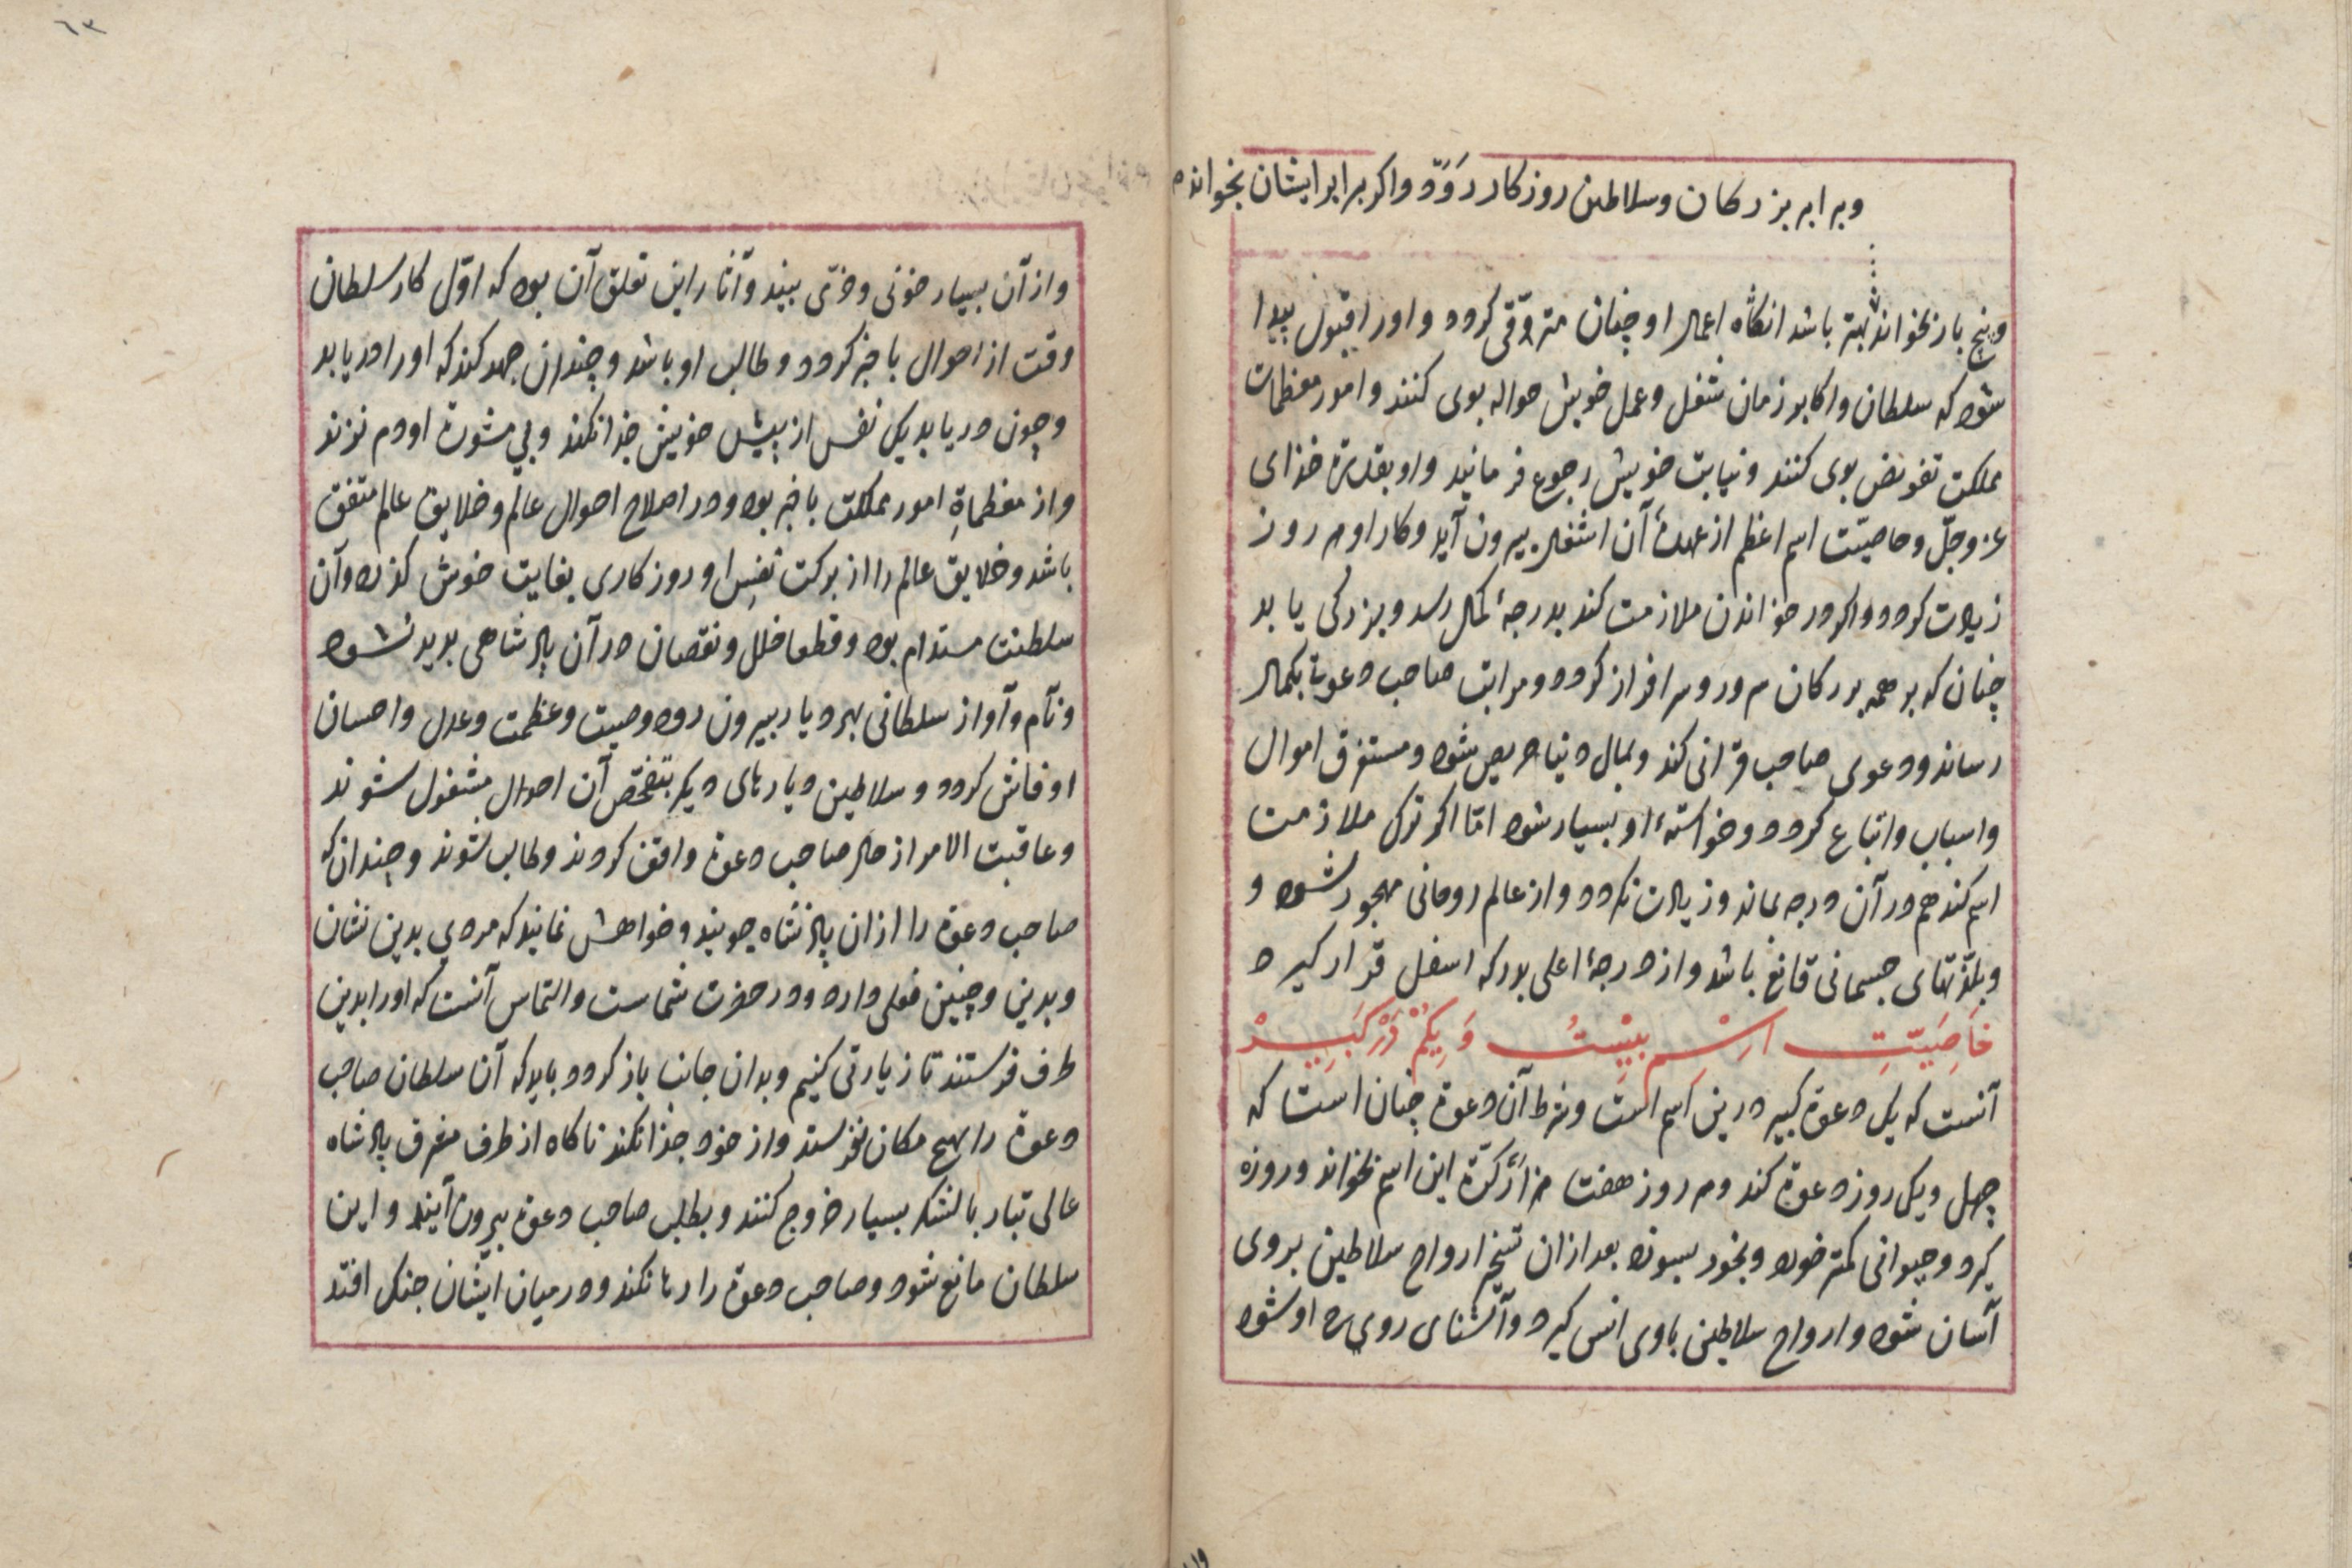 وبرابر بزرکان وسلاطین روزکار رَوَدْ واکر برابر ایشان بخواند
وپنج بار بخواند بهتر باشد انکاه اعمال او چنان مترقّی کردد واورا قبول پیدا
شود که سلطان واکابر زمان شغل وعمل خویش حواله بوی کنند وامور معظمات
مملکت تفویض بوی کنند ونیابت خویش رجوع فرمایند واو بقدرة خدای
عزوجلّ وخاصیّت اسم اعظم از عهدۀ آن اشغال بیرون آید وکار او هر روز
زیادت کردد واکر در خواندن ملازمت کند بدرجۀ کمال رسد وبزرکی یابد
چنان که بر همه بزرکان سرور وسرافراز کردد ومراتب صاحب دعوة بکمال
رساند ودعوی صاحب قرانی کند وبمال دنیا حریص شود ومستغرق اموال
واسباب واتباع کردد وخواستهٔ او بسیار شود امّا اکر ترک ملازمت
اسم کند هم در آن درجه بماند وزیادت نکردد واز عالم روحانی مهجور شود و
وبلذّتهای جسمانی قانع باشد واز درجۀ اعلی بدرکه اسفل قرار کیرد
خَاصِیَتِ اِسْمِ بِیسْتُ وَ یِکُمْ دَرْ کَبِیرْ
آنست که یک دعوة کبیر درین اسم است وشرط آن دعوة چنان است که
چهل ویک روز دعوة کند وهر روز هفت هزار کرّة این اسم بخواند وروزه
کیرد وحیوانی کمتر خورد وبخور بسوزد بعد از آن تسخیر ارواح سلاطین بروی
آسان شود وارواح سلاطین باوی انس کیرد وآشنای روی ح او شود
٦٣
واز آن بسیار خوبی وخرّمی بیند وآثار این تعلق آن بود که اوّل کار سلطان
وقت از احوال باخبر کردد وطالب او باشد وچندان جهد کند که اورا دریابد
وچون دریابد یک نفس از پیش خویش جدا نکند وبی مشورة او دم نزند
واز معظماةِ امور مملکت باخبر بود ودر اصلاح احوال عالم وخلایق عالم متفق
باشد وخلایق عالم را از برکت نفسِ او روزکاری بغایت خوش کذرد وآن
سلطنت مستدام بود وقطعا خلل ونقصان در آن پادشاهی پدید نشود
ونام وآواز سلطانی بهر دیار بیرون رود وصیت وعظمت وعدل واحسان
او فاش کردد وسلاطین دیارهای دیکر بتفحّص آن احوال مشغول شوند
وعاقبت الامر از حال صاحب دعوة واقف کردند وطالب شوند وچندان که
صاحب دعوة را از آن پادشاه جویند وخواهش نمایند که مردی بدین نشان
وبدین وچنین فعلی دارد ودر حضرت شماست والتماس آنست که اورا بدین
طرف فرستند تا زیارتی کنیم وبدان جانب باز کردد باید که آن سلطان صاحب
دعوة را بهیچ مکان نفرستد واز خود جدا نکند ناکاه از طرف مغرق پادشاه
عالی تبار بالشکر بسیار خروج کنند وبطلب صاحب دعوة بیرون آیند واین
سلطان مانع شود وصاحب دعوة را رها نکند ودر میان ایشان جنک افتد